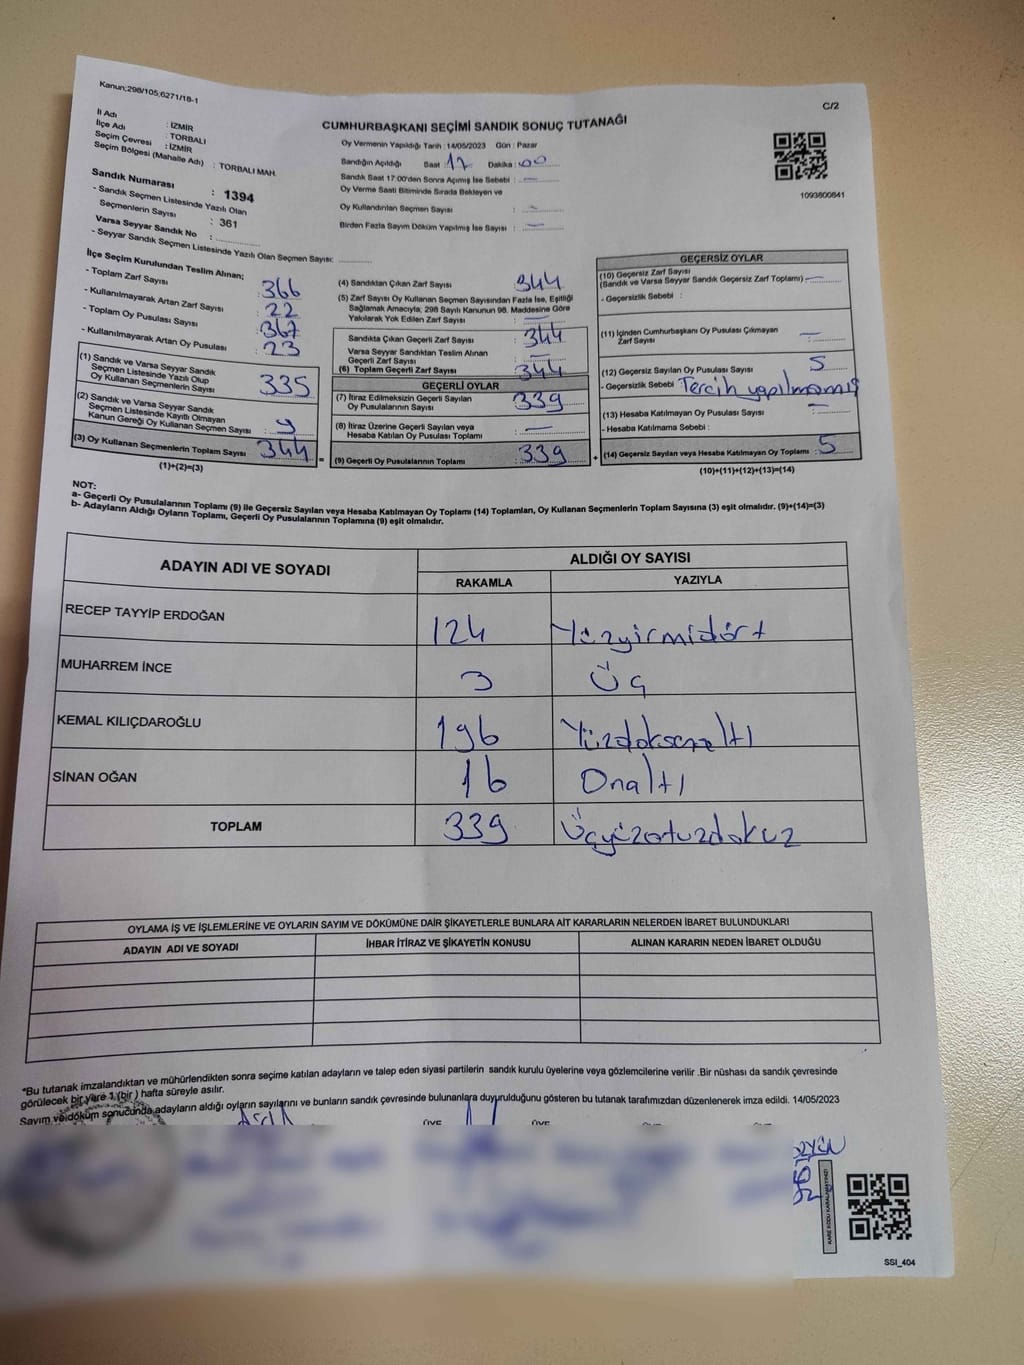 Kanun;298/105,6271/18-1
C/2
İl Adı : İZMİR
İlçe Adı : TORBALI
Seçim Çevresi : İZMİR
Seçim Bölgesi (Mahalle Adı) : TORBALI MAH.
Sandık Numarası : 1394
- Sandık Seçmen Listesinde Yazılı Olan
Seçmenlerin Sayısı : 361
Varsa Seyyar Sandık No :
- Seyyar Sandık Seçmen Listesinde Yazılı Olan Seçmen Sayısı:
CUMHURBAŞKANI SEÇİMİ SANDIK SONUÇ TUTANAĞI
Oy Vermenin Yapıldığı Tarih : 14/05/2023 Gün : Pazar
Sandığın Açıldığı Saat 17 Dakika : 00
Sandık Saat 17:00'den Sonra Açımış İse Sebebi : —
Oy Verme Saati Bitiminde Sırada Bekleyen ve
Oy Kullandırılan Seçmen Sayısı : -
Birden Fazla Sayım Döküm Yapılmış İse Sayısı : —
1093800841
İlçe Seçim Kurulundan Teslim Alınan;
- Toplam Zarf Sayısı : 366
- Kullanılmayarak Artan Zarf Sayısı : 22
- Toplam Oy Pusulası Sayısı : 367
- Kullanılmayarak Artan Oy Pusulası : 23
(1) Sandık ve Varsa Seyyar Sandık
Seçmen Listesinde Yazılı Olup
Oy Kullanan Seçmenlerin Sayısı : 335
(2) Sandık ve Varsa Seyyar Sandık
Seçmen Listesinde Kayıtlı Olmayan
Kanun Gereği Oy Kullanan Seçmen Sayısı : 9
(3) Oy Kullanan Seçmenlerin Toplam Sayısı : 344
(1)+(2)=(3)
(4) Sandıktan Çıkan Zarf Sayısı : 344
(5) Zarf Sayısı Oy Kullanan Seçmen Sayısından Fazla İse, Eşitliği
Sağlamak Amacıyla; 298 Sayılı Kanunun 98. Maddesine Göre
Yakılarak Yok Edilen Zarf Sayısı : —
Sandıkta Çıkan Geçerli Zarf Sayısı : 344
Varsa Seyyar Sandıktan Teslim Alınan
Geçerli Zarf Sayısı : —
(6) Toplam Geçerli Zarf Sayısı : 344
GEÇERLİ OYLAR
(7) İtiraz Edilmeksizin Geçerli Sayılan
Oy Pusulalarının Sayısı : 339
(8) İtiraz Üzerine Geçerli Sayılan veya
Hesaba Katılan Oy Pusulası Toplamı : —
= (9) Geçerli Oy Pusulalarının Toplamı : 339 +
GEÇERSİZ OYLAR
(10) Geçersiz Zarf Sayısı
(Sandık ve Varsa Seyyar Sandık Geçersiz Zarf Toplamı) —
- Geçersizlik Sebebi :
(11) İçinden Cumhurbaşkanı Oy Pusulası Çıkmayan
Zarf Sayısı : —
(12) Geçersiz Sayılan Oy Pusulası Sayısı : 5
- Geçersizlik Sebebi : Tercih yapılmamış
(13) Hesaba Katılmayan Oy Pusulası Sayısı : —
- Hesaba Katılmama Sebebi :
(14) Geçersiz Sayılan veya Hesaba Katılmayan Oy Toplamı : 5
(10)+(11)+(12)+(13)=(14)
NOT:
a- Geçerli Oy Pusulalarının Toplamı (9) ile Geçersiz Sayılan veya Hesaba Katılmayan Oy Toplamı (14) Toplamları, Oy Kullanan Seçmenlerin Toplam Sayısına (3) eşit olmalıdır. (9)+(14)=(3)
b- Adayların Aldığı Oyların Toplamı, Geçerli Oy Pusulalarının Toplamına (9) eşit olmalıdır.
ADAYIN ADI VE SOYADI
ALDIĞI OY SAYISI
RAKAMLA YAZIYLA
RECEP TAYYİP ERDOĞAN 124 Yüzyirmidört
MUHARREM İNCE 3 Üç
KEMAL KILIÇDAROĞLU 196 Yüzdoksanaltı
SİNAN OĞAN 16 Onaltı
TOPLAM 339 Üçyüzotuzdokuz
OYLAMA İŞ VE İŞLEMLERİNE VE OYLARIN SAYIM VE DÖKÜMÜNE DAİR ŞİKAYETLERLE BUNLARA AİT KARARLARIN NELERDEN İBARET BULUNDUKLARI
ADAYIN ADI VE SOYADI İHBAR İTİRAZ VE ŞİKAYETİN KONUSU ALINAN KARARIN NEDEN İBARET OLDUĞU
*Bu tutanak imzalandıktan ve mühürlendikten sonra seçime katılan adayların ve talep eden siyasi partilerin sandık kurulu üyelerine veya gözlemcilerine verilir .Bir nüshası da sandık çevresinde
görülecek bir yare 1 (bir) hafta süreyle asılır.
Sayım ve döküm sonucunda adayların aldığı oyların sayılarını ve bunların sandık çevresinde bulunanlara duyurulduğunu gösteren bu tutanak tarafımızdan düzenlenerek imza edildi. 14/05/2023
ÜYE ÜYE
SSI_404